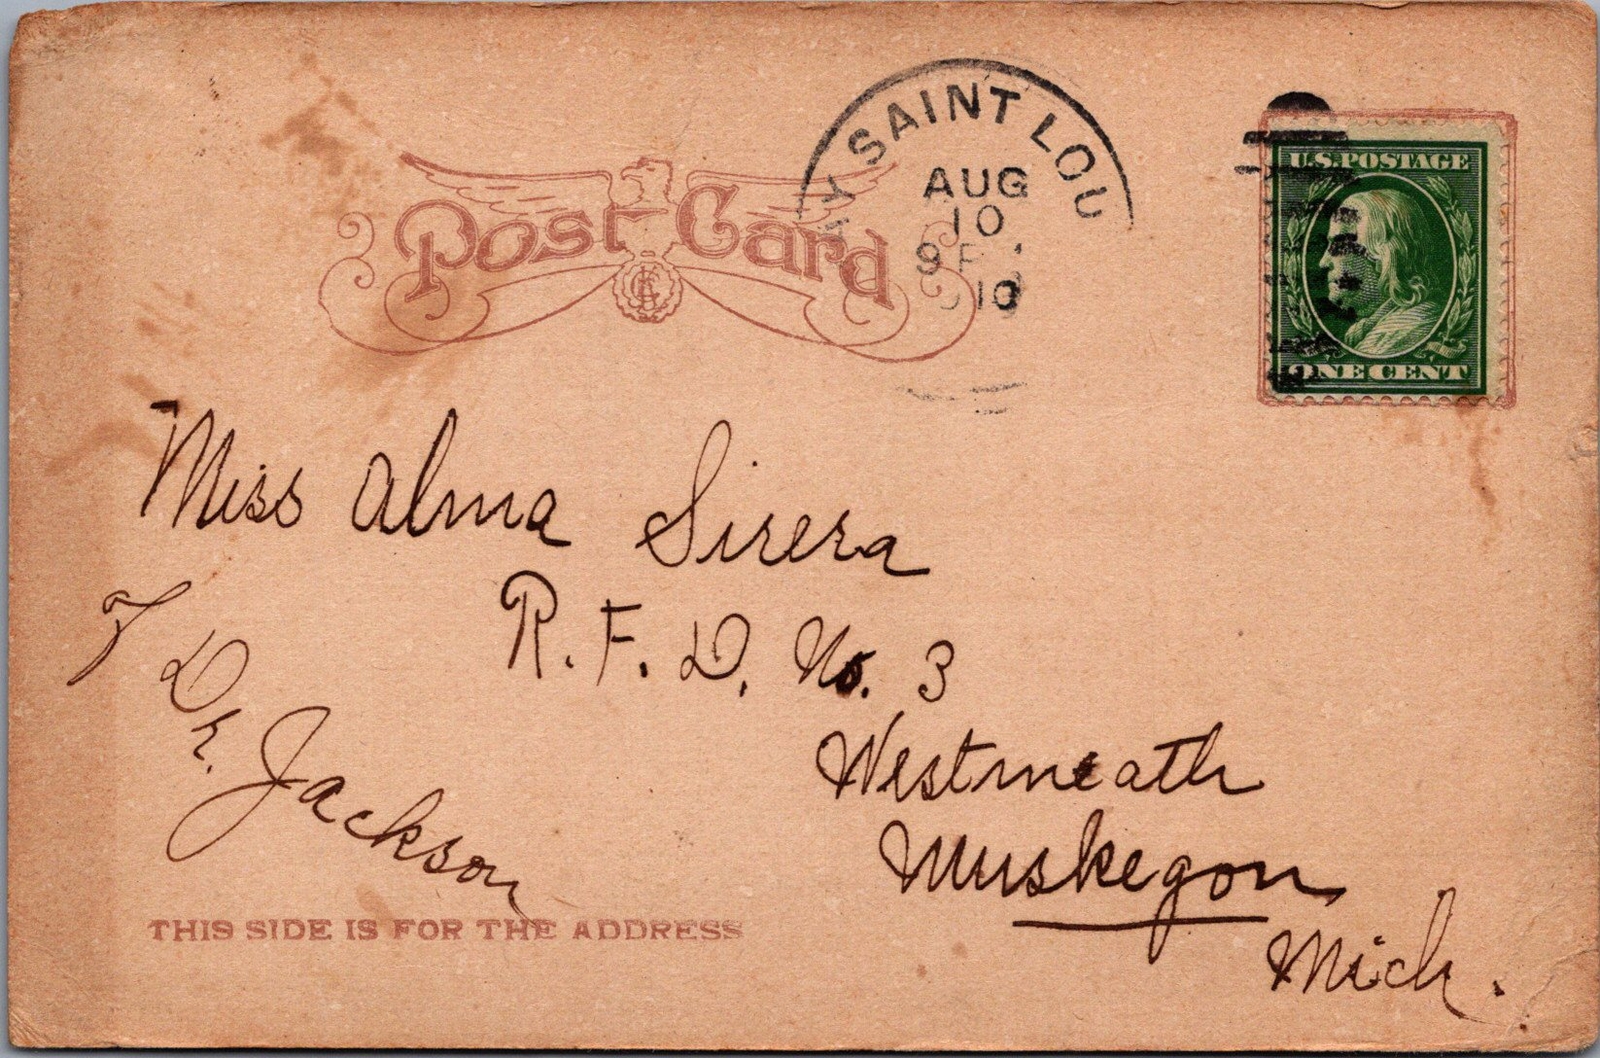 Post Card
SAINT LOU
AUG
10
9 P
10
U.S. POSTAGE
ONE CENT
Miss Alma Sirera
R. F. D. No. 3
Westmeath
Muskegon
Mich.
Dr. Jackson
THIS SIDE IS FOR THE ADDRESS